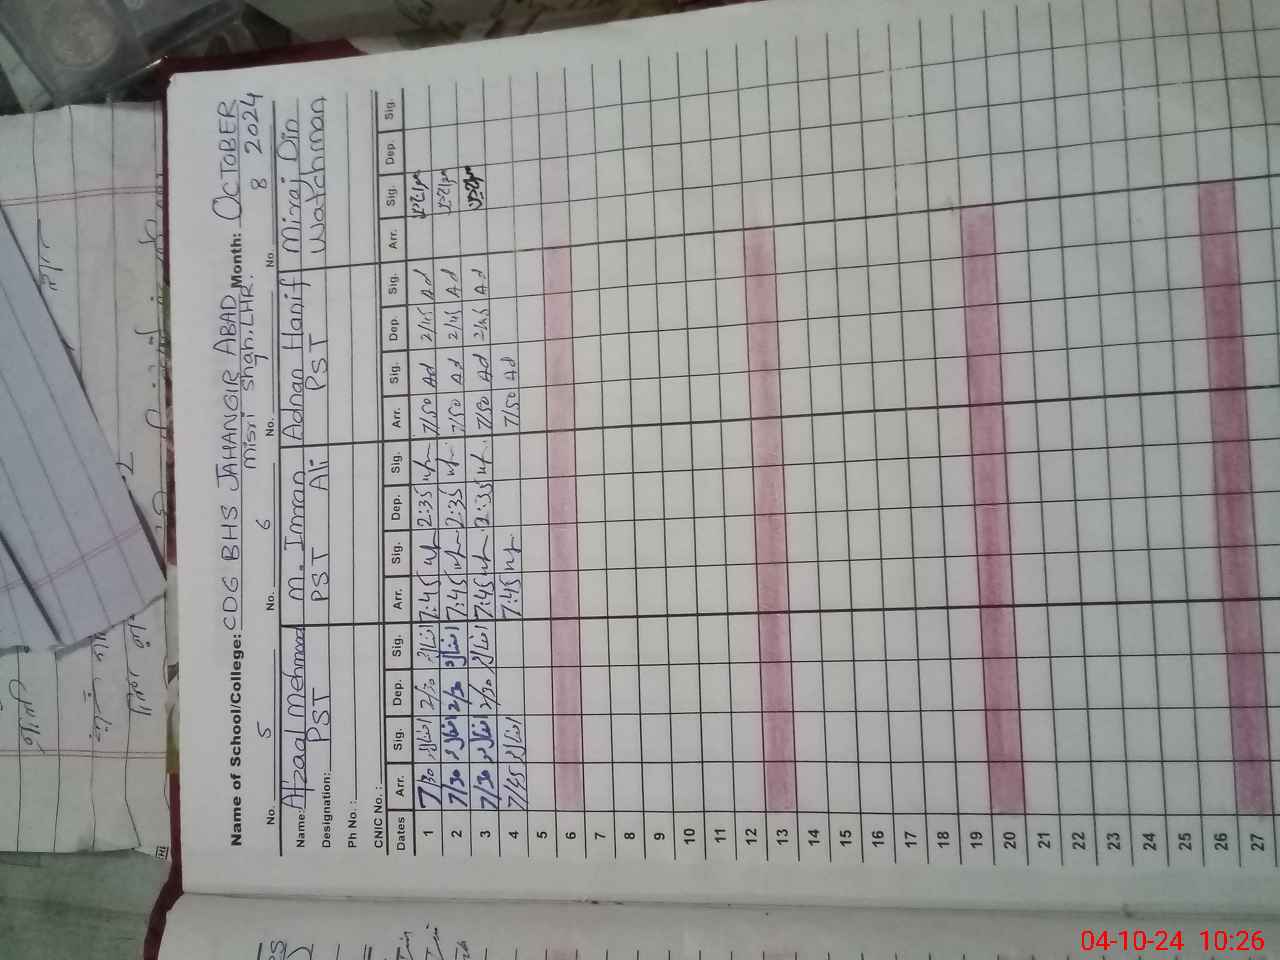 Name of School/College: CDG BHS JAHANGIR ABAD Month: OCTOBER
misri shah, LHR. 2024
No. 5 No. 6 No. No. 8
Name: Afzaal Mehmood M. Imran Ali Adnan Hanif Miraj Din
Designation: PST PST PST Watchman
Ph No. :
CNIC No. :
Dates Arr. Sig. Dep. Sig. Arr. Sig. Dep. Sig. Arr. Sig. Dep. Sig. Arr. Sig. Dep. Sig.
1 7/30 2/30 7:45 2:35 7/50 Ad 2/45 Ad
2 7/30 2/30 7:45 2:35 7/50 Ad 2/45 Ad
3 7/30 2/30 7:45 2:35 7/50 Ad 2/45 Ad
4 7/45 7:45 7/50 Ad
5
6
7
8
9
10
11
12
13
14
15
16
17
18
19
20
21
22
23
24
25
26
27
04-10-24 10:26